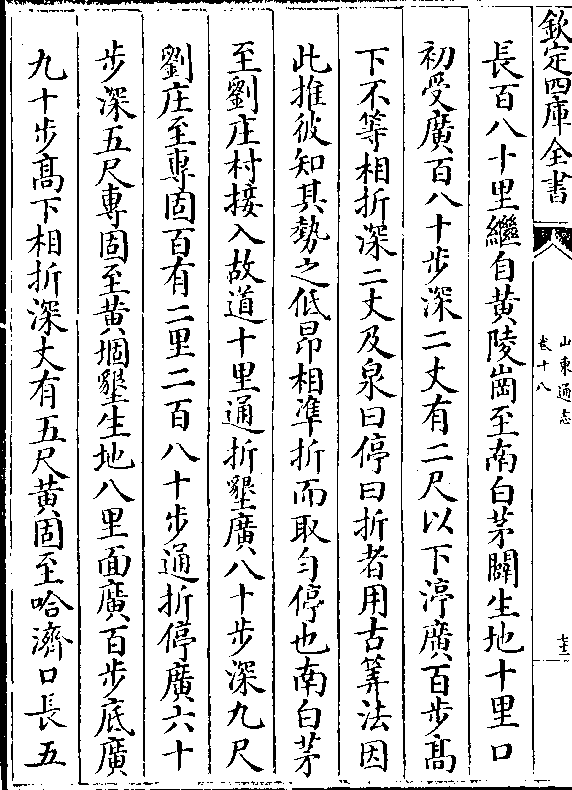 欽定四庫全書
山東通志
卷十八
十三
長百八十里繼自黃陵崗至南白茅闢生地十里口
初受廣百八十步深二丈有二尺以下渟廣百步髙
下不等相折深二丈及泉曰停曰折者用古筭法因
此推彼知其勢之低昂相凖折而取勻停也南白茅
至劉庄村接入故道十里通折墾廣八十步深九尺
劉庄至専固百有二里二百八十步通折停廣六十
步深五尺専固至黄堌墾生地八里面廣百步底廣
九十步髙下相折深丈有五尺黄固至哈濟口長五